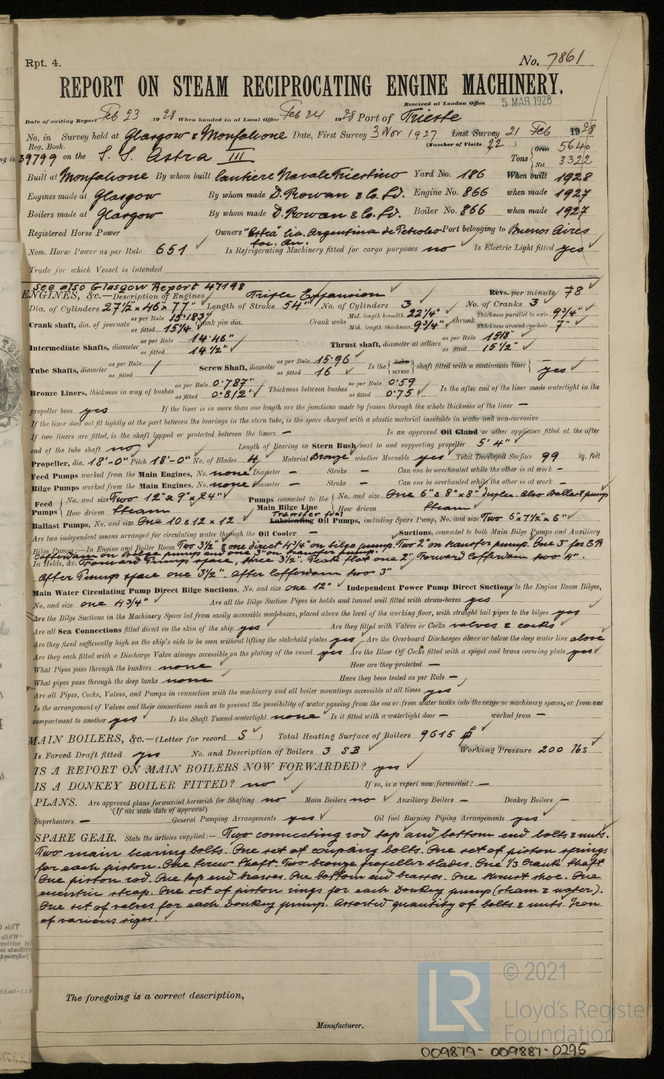 Rpt. 4.
No. 7861
REPORT ON STEAM RECIPROCATING ENGINE MACHINERY.
Received at London Office 5 MAR 1928
Date of writing Report Feb 23 1928 When handed in at Local Office Feb 24 1928 Port of Trieste
No. in Reg. Book. Survey held at Glasgow & Monfalcone Date, First Survey 3 Nov 1927 Last Survey 21 Feb 1928
(Number of Visits 22)
39799 on the S. S. Astra III Tons Gross 5640 Net 3322
Built at Monfalcone By whom built Cantiere Navale Triestino Yard No. 186 When built 1928
Engines made at Glasgow By whom made D. Rowan & Co. Ld. Engine No. 866 when made 1927
Boilers made at Glasgow By whom made D. Rowan & Co. Ld. Boiler No. 866 when made 1927
Registered Horse Power Owners "Astra" Cia. Argentina de Petroleo Port belonging to Buenos Aires
Nom. Horse Power as per Rule 651 Is Refrigerating Machinery fitted for cargo purposes no Is Electric Light fitted yes
Trade for which Vessel is intended
See also Glasgow Report 47198
ENGINES, &c.—Description of Engines Triple Expansion Revs. per minute 78
Dia. of Cylinders 27½" x 46 x 77" Length of Stroke 54" No. of Cylinders 3 No. of Cranks 3
Crank shaft, dia. of journals as per Rule 15.183" as fitted 15¼" Crank pin dia. Crank webs Mid. length breadth 22¼" Mid. length thickness 9¾" shrunk Thickness parallel to axis 9¾" Thickness around eye-hole 7"
Intermediate Shafts, diameter as per Rule 14.46" as fitted 14½" Thrust shaft, diameter at collars as per Rule as fitted 15½"
Tube Shafts, diameter as per Rule as fitted Screw Shaft, diameter as per Rule 15.96 as fitted 16 Is the tube screw shaft fitted with a continuous liner yes
Bronze Liners, thickness in way of bushes as per Rule 0.787" as fitted 0.812" Thickness between bushes as per Rule 0.59 as fitted 0.75" Is the after end of the liner made watertight in the
propeller boss yes If the liner is in more than one length are the junctions made by fusion through the whole thickness of the liner —
If the liner does not fit tightly at the part between the bearings in the stern tube, is the space charged with a plastic material insoluble in water and non-corrosive
If two liners are fitted, is the shaft lapped or protected between the liners — Is an approved Oil Gland or other appliance fitted at the after
end of the tube shaft no Length of Bearing in Stern Bush next to and supporting propeller 5' 4"
Propeller, dia. 18'-0" Pitch 18'-0" No. of Blades 4 Material Bronze whether Moveable yes Total Developed Surface 99 sq. feet
Feed Pumps worked from the Main Engines, No. none Diameter — Stroke — Can one be overhauled while the other is at work —
Bilge Pumps worked from the Main Engines, No. none Diameter — Stroke — Can one be overhauled while the other is at work —
Feed Pumps No. and size Two 12" x 9" x 24" Pumps connected to the Main Bilge Line No. and size One 6" x 8" x 8" duplex. Also Ballast pump
How driven Steam How driven Steam
Ballast Pumps, No. and size One 10 x 12 x 12 Transfer fuel Lubricating Oil Pumps, including Spare Pump, No. and size Two 6 x 7½ x 6"
Are two independent means arranged for circulating water through the Oil Cooler — Suctions, connected to both Main Bilge Pumps and Auxiliary
Bilge Pumps:—In Engine and Boiler Room Two 3½" & one direct 4¾" on bilge pump. Two 2" on transfer pump. One 3" for E.R
Cofferdam on bilge pump and one 3" on transfer pump.
In Holds, &c. Forward Pump space, three 3½". Peak flat one 2". Forward cofferdam two 4".
After Pump space one 3½". After cofferdam two 3"
Main Water Circulating Pump Direct Bilge Suctions, No. and size one 12" Independent Power Pump Direct Suctions to the Engine Room Bilges,
No. and size one 4¾" Are all the Bilge Suction Pipes in holds and tunnel well fitted with strum-boxes yes
Are the Bilge Suctions in the Machinery Space led from easily accessible mud-boxes, placed above the level of the working floor, with straight tail pipes to the bilges yes
Are all Sea Connections fitted direct on the skin of the ship yes Are they fitted with Valves or Cocks valves & cocks
Are they fixed sufficiently high on the ship's side to be seen without lifting the stokehold plates yes Are the Overboard Discharges above or below the deep water line above
Are they each fitted with a Discharge Valve always accessible on the plating of the vessel yes Are the Blow Off Cocks fitted with a spigot and brass covering plate yes
What Pipes pass through the bunkers none How are they protected —
What pipes pass through the deep tanks none Have they been tested as per Rule —
Are all Pipes, Cocks, Valves, and Pumps in connection with the machinery and all boiler mountings accessible at all times yes
Is the arrangement of Valves and their connections such as to prevent the possibility of water passing from the sea or from water tanks into the cargo or machinery spaces, or from one
compartment to another yes Is the Shaft Tunnel watertight none Is it fitted with a watertight door — worked from —
MAIN BOILERS, &c.—(Letter for record S) Total Heating Surface of Boilers 9615 ⌀
Is Forced Draft fitted yes No. and Description of Boilers 3 SB Working Pressure 200 lbs
IS A REPORT ON MAIN BOILERS NOW FORWARDED? yes
IS A DONKEY BOILER FITTED? no If so, is a report now forwarded? —
PLANS. Are approved plans forwarded herewith for Shafting no Main Boilers no Auxiliary Boilers — Donkey Boilers —
(If not state date of approval)
Superheaters — General Pumping Arrangements yes Oil fuel Burning Piping Arrangements yes
SPARE GEAR. State the articles supplied:— Two connecting rod top and bottom end bolts & nuts.
Two main bearing bolts. One set of coupling bolts. One set of piston springs
for each piston. One screw shaft. Two bronze propeller blades. One 1/3 crank shaft
One piston rod. One top end brasses. One bottom end brasses. One thrust shoe. One
eccentric strap. One set of piston rings for each donkey pump (steam & water).
One set of valves for each donkey pump. Assorted quantity of bolts & nuts. Iron
of various sizes.
The foregoing is a correct description,
Manufacturer.
LR © 2021
Lloyd's Register
Foundation
009879-009887-0295